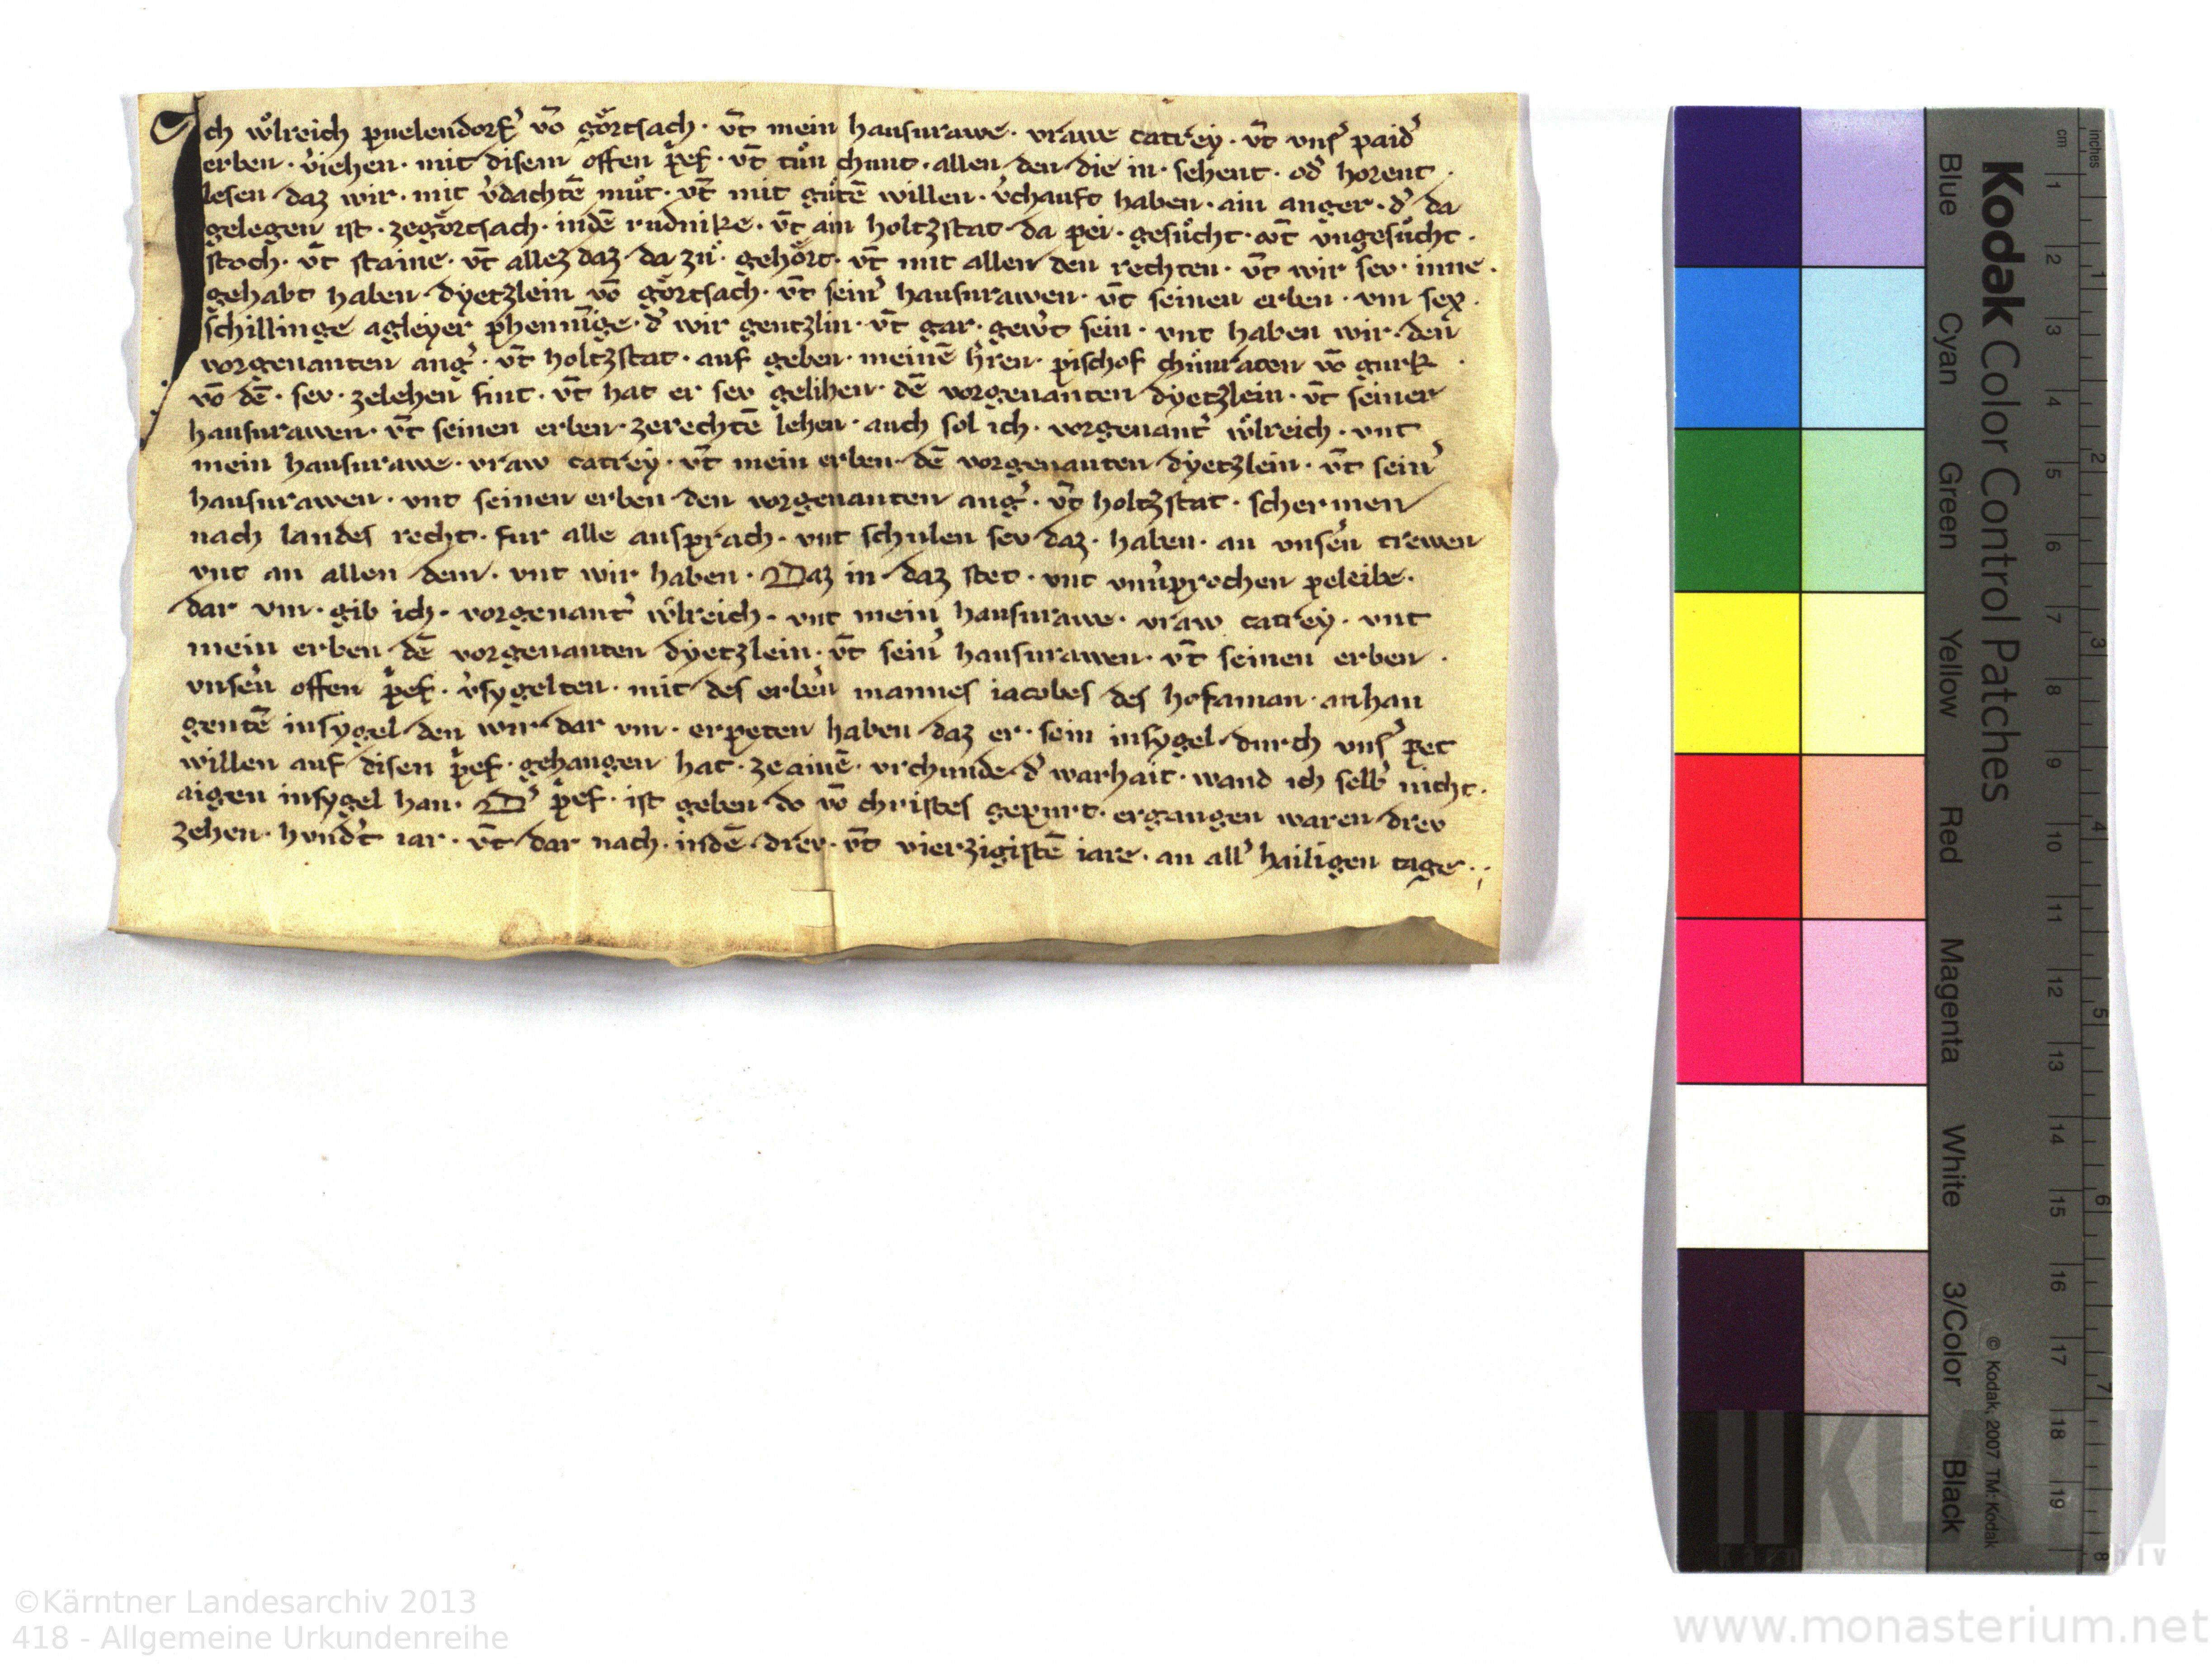 Ich wͦlreich puelendorf᾽ vō gͦortsach · vn̄t mein hausurawe · vrawe catrey · vn̄t vns᾽ paid᾽
erben · v᾽iehen · mit disem offen p᾽ef · vn̄t tuͦn chunt · allen den die in · sehent · od᾽ horent ·
lesen daz wir · mit v᾽dachtē muͦt · vn̄t mit guͦtē willen · v᾽chauft haben · ain anger · d᾽ da
gelegen ist · zegͦortsach · indē rudnike · vn̄t ain holtzstat da pei · gesuͦcht · vn̄t vngesuͦcht ·
stoch · vn̄t staine · vn̄t allez daz · da zuͦ · gehͦort · vn̄t mit allen den rechten · vn̄t wir sev · inne ·
gehabt haben dyetzlein vō gͦortsach · vn̄t sein᾽ hausurawen · vn̄t seinen erben · vm sex ·
schillinge agleyer phennīge · d᾽ wir gentzlin · vn̄t gar · gew᾽t sein · vnt haben wir · den
vorgenanten ang᾽ · vn̄t holtzstat · auf geben · meinē h᾽ren · pischof chuͦnraten vō gurk ·
vō dē · sev · zelehen sint · vn̄t hat er sev gelihen · dē vorgenanten dyetzlein · vn̄t seiner
hausurawen · vn̄t seinen erben · zerechtē lehen · auch sol ich · vorgenant᾽ wͦlreich · vnt
mein hausurawe · vraw catrey · vn̄t mein erben · dē vorgenanten dyetzlein · vn̄t sein᾽
hausurawen · vnt seinen erben den vorgenanten ang᾽ · vn̄t holtzstat · schermen
nach landes recht · fur alle ansprach · vnt schulen sev daz · haben · an vns᾽en trewen
vnt an allen dem · vnt wir haben · Daz in · daz stet · vnt vnu᾽prochen peleibe ·
dar vm · gib ich · vorgenant᾽ wͦlreich · vnt mein hausurawe · vraw catrey · vnt
mein erben dē vorgenanten dyetzlein · vn̄t sein᾽ hausurawen · vn̄t seinen erben ·
vns᾽en offen p᾽ef · v᾽sygelten · mit des erb᾽en mannes iacobes des hofaman · anhan
gentē insygel den wir dar vm · erpeten haben daz er · sein insygel durch vns᾽ pet
willen auf disen p᾽ef · gehangen hat · ze ainē · vrchunde d᾽ warhait · wand ich selb᾽ nicht ·
aigen insygel han · D᾽ p᾽ef · ist geben do vō christes gepurt · ergangen waren drev
zehen · hvnd᾽t iar · vn̄t dar nach · indē drev · vn̄t vierzigistē iare · an all᾽ hailigen tage ·
Kodak Color Control Patches
Blue Cyan Green Yellow Red Magenta White 3/Color Black
© Kodak, 2007 TM: Kodak
cm 1 2 3 4 5 6 7 8 9 10 11 12 13 14 15 16 17 18 19
inches 1 2 3 4 5 6 7 8
©Kärntner Landesarchiv 2013
418 - Allgemeine Urkundenreihe
www.monasterium.net